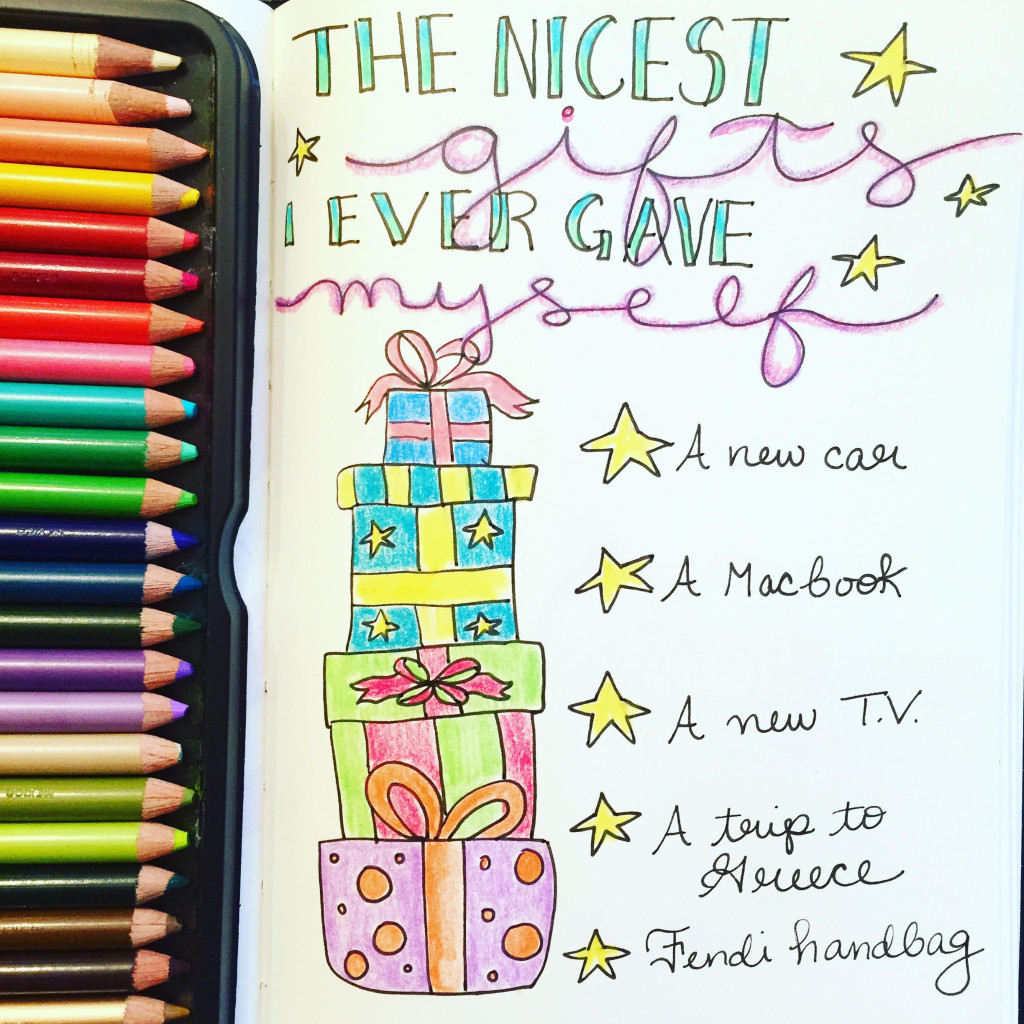 THE NICEST
gifts
I EVER GAVE
myself
A new car
A Macbook
A new T.V.
A trip to
Greece
Fendi handbag